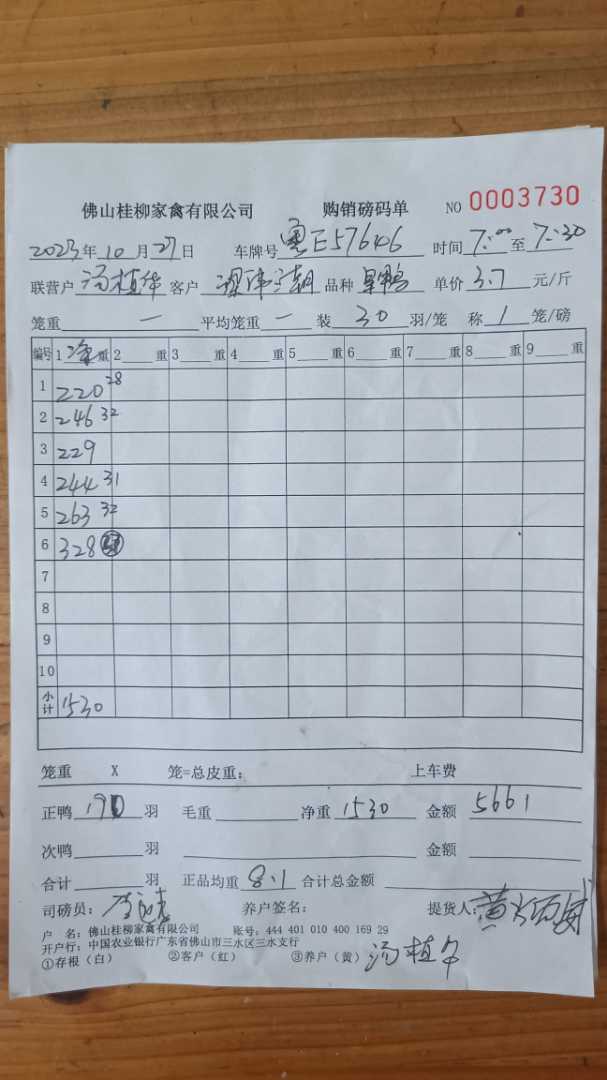 佛山桂柳家禽有限公司 购销磅码单 NO 0003730
2023年10月27日 车牌号 粤E57646 时间 7:00 至 7:30
联营户 汤植华 客户 品种 单价 3.7 元/斤
笼重 一 平均笼重 一 装 30 羽/笼 称 1 笼/磅
编号 1 净 重 2 重 3 重 4 重 5 重 6 重 7 重 8 重 9 重
1 220 28
2 246 32
3 229
4 244 31
5 263 32
6 328
7
8
9
10
小计 1530
笼重 X 笼=总皮重: 上车费
正鸭 190 羽 毛重 净重 1530 金额 5661
次鸭 羽 金额
合计 羽 正品均重 8.1 合计总金额
司磅员: 养户签名: 提货人:
户 名: 佛山桂柳家禽有限公司 账号: 444 401 010 400 169 29
开户行: 中国农业银行广东省佛山市三水区三水支行
①存根(白) ②客户(红) ③养户(黄) 汤植